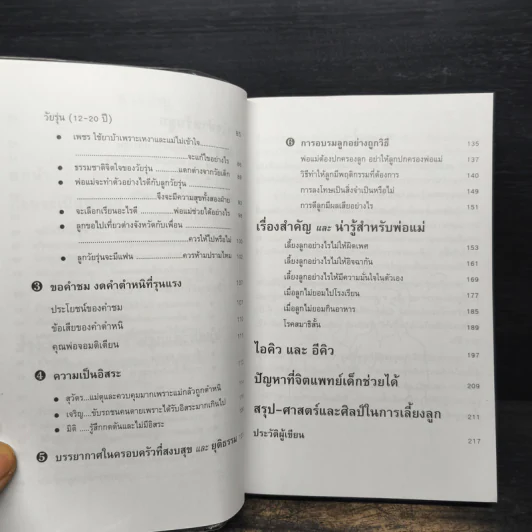 วัยรุ่น (12-20 ปี)
• เพชร ใช้ยาบ้าเพราะเหงาและแม่ไม่เข้าใจ
จะแก้ไขอย่างไร
• ธรรมชาติจิตใจของวัยรุ่น แตกต่างจากวัยเด็ก
• พ่อแม่จะทำตัวอย่างไรดีกับลูกวัยรุ่น
จึงจะมีความสุขทั้งสองฝ่าย
• จะเลือกเรียนอะไรดี พ่อแม่ช่วยได้อย่างไร
• ลูกขอไปเที่ยวต่างจังหวัดกับเพื่อน
ควรให้ไปหรือไม่
• ลูกวัยรุ่นจะมีแฟน ควรห้ามปรามไหม
3 ขอคำชม งดคำตำหนิที่รุนแรง
ประโยชน์ของคำชม
ข้อเสียของคำตำหนิ
คุณพ่อจอมติเตียน
4 ความเป็นอิสระ
• สุวัตร...แม่ดุและควบคุมมากเพราะแม่กลัวถูกตำหนิ
• เจริญ...ขับรถชนคนตายเพราะได้รับอิสระมากเกินไป
• มิติ ...รู้สึกกดดันและไม่มีอิสระ
5 บรรยากาศในครอบครัวที่สงบสุข และ ยุติธรรม
6 การอบรมลูกอย่างถูกวิธี 135
พ่อแม่ต้องปกครองลูก อย่าให้ลูกปกครองพ่อแม่ 137
วิธีทำให้ลูกมีพฤติกรรมที่ต้องการ 140
การลงโทษเป็นสิ่งจำเป็นหรือไม่ 149
การตีลูกมีผลเสียอย่างไร 151
เรื่องสำคัญ และ น่ารู้สำหรับพ่อแม่
เลี้ยงลูกอย่างไรไม่ให้ผิดเพศ 153
เลี้ยงลูกอย่างไรไม่ให้อิจฉากัน 161
เลี้ยงลูกอย่างไรให้มีความมั่นใจในตัวเอง 169
เมื่อลูกไม่ยอมไปโรงเรียน 177
เมื่อลูกไม่ยอมกินอาหาร 185
โรคสมาธิสั้น 189
ไอคิว และ อีคิว 197
ปัญหาที่จิตแพทย์เด็กช่วยได้ 209
สรุป-ศาสตร์และศิลป์ในการเลี้ยงลูก 211
ประวัติผู้เขียน 217